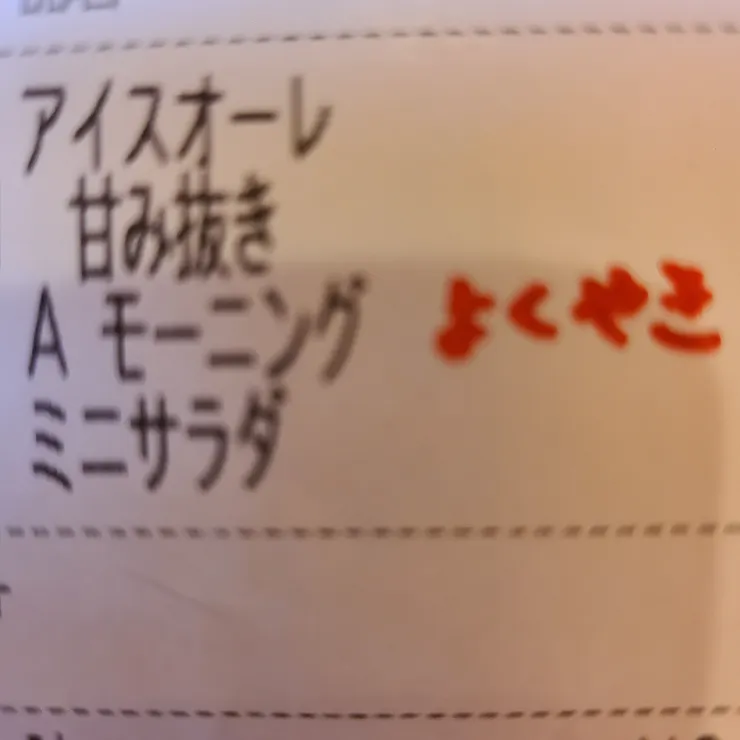 アイスオーレ
甘み抜き
A モーニング よくやき
ミニサラダ